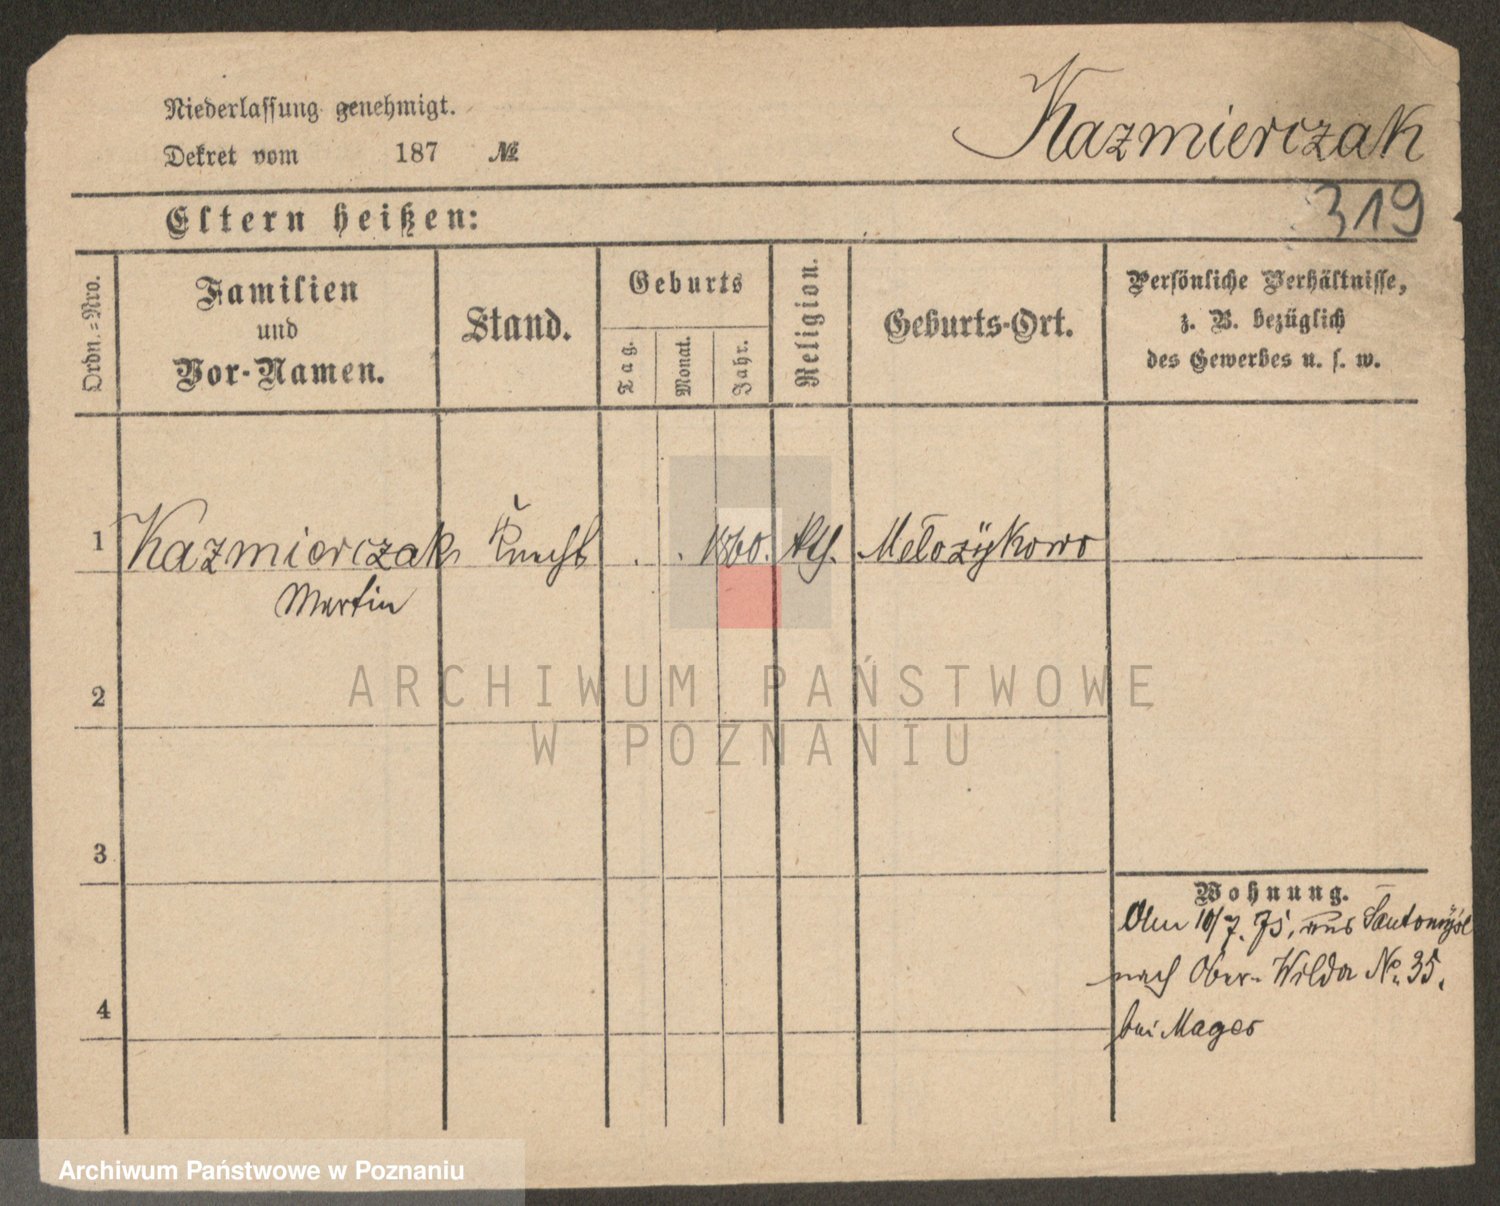 Niederlassung genehmigt.
Dekret vom 187 №
Kazmierczak
319
Eltern heißen:
Ordn.=Nro.
Familien
und
Vor-Namen.
Stand.
Geburts
Tag.
Monat.
Jahr.
Religion.
Geburts-Ort.
Persönliche Verhältnisse,
z. B. bezüglich
des Gewerbes u. s. w.
1 Kazmierczak Knecht . . 1860. kth.
Martin
2
3
4
Wohnung.
Am 10/7. 75. aus Santomysl
nach Ober-Wilda No. 35.
bei Mager
ARCHIWUM PAŃSTWOWE
W POZNANIU
Archiwum Państwowe w Poznaniu